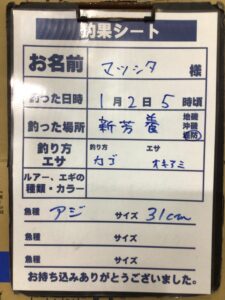 釣果シート
お名前 マツシタ 様
釣った日時 1月2日5時頃
釣った場所 新芳養 地磯 沖磯 堤防
釣り方 エサ 釣り方 カゴ エサ オキアミ
ルアー、エギの種類・カラー
魚種 アジ サイズ 31cm
魚種 サイズ
魚種 サイズ
お持ち込みありがとうございました。